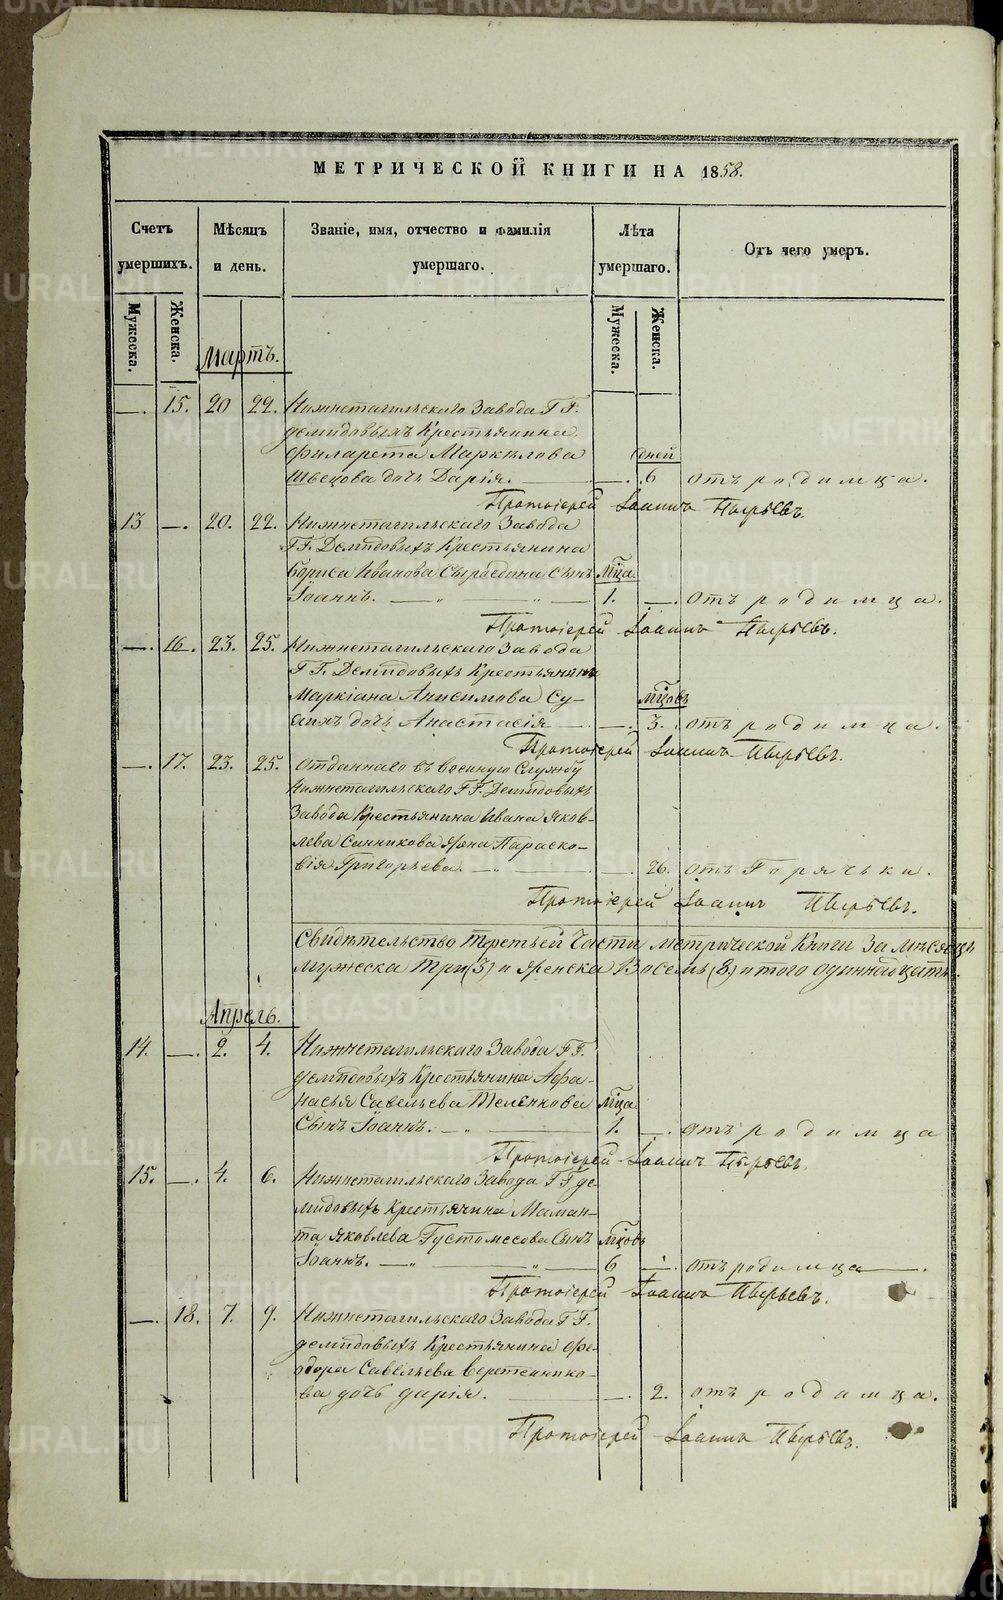 МЕТРИЧЕСКОЙ КНИГИ НА 1858.
Счетъ умершихъ. Мѣсяцъ и день. Званіе, имя, отчество и фамилія умершаго. Лѣта умершаго. Отъ чего умеръ.
Мужеска. Женска. Мужеска. Женска.
Мартъ.
—. 15. 20 22. Нижнетагильскаго Завода Г.Г.
Демидовыхъ Крестьянина
Филарета Маркелова дней
Швецова дочь Дарія. —. 6 отъ родимца.
Протоіерей Іоаннъ Пырьевъ.
13 —. 20. 22. Нижнетагильскаго Завода
Г.Г. Демидовыхъ Крестьянина
Бориса Иванова Сыроедина сынъ мѣца.
Іоаннъ. 1. —. отъ родимца.
Протоіерей Іоаннъ Пырьевъ.
—. 16. 23. 25. Нижнетагильскаго Завода
Г.Г. Демидовыхъ Крестьянина
Маркіана Анисимова Су- мѣцовъ
дочь Анастасія —. 3. отъ родимца.
Протоіерей Іоаннъ Пырьевъ.
—. 17. 23. 25. Отданнаго въ военную службу
Нижнетагильскаго Г.Г. Демидовыхъ
Завода Крестьянина Ивана Яков-
лева Санникова жена Параско-
вія Григорьева. —. 26. отъ Горячьки.
Протоіерей Іоаннъ Пырьевъ.
Свидѣтельство третьей части метрической Книги за мѣсяцъ
мужеска три (3) и женска Восемь (8) итого одиннадцать
Апрель.
14. —. 2. 4. Нижнетагильскаго Завода Г.Г.
Демидовыхъ Крестьянина Афа-
насья Савельева Теленкова мѣца
Сынъ Іоаннъ. 1. —. отъ родимца
Протоіерей Іоаннъ Пырьевъ.
15. —. 4. 6. Нижнетагильскаго Завода Г.Г. Де
мидовыхъ Крестьянина Маман-
та Яковлева Густомесова сынъ мѣцовъ
Іоаннъ. 6 —. отъ родимца.
Протоіерей Іоаннъ Пырьевъ.
—. 18. 7. 9. Нижнетагильскаго Завода Г.Г.
Демидовыхъ Крестьянина Фе-
одора Савельева Веретеннико-
ва дочь Дарія. —. 2. отъ родимца.
Протоіерей Іоаннъ Пырьевъ.
METRIKI.GASO-URAL.RU